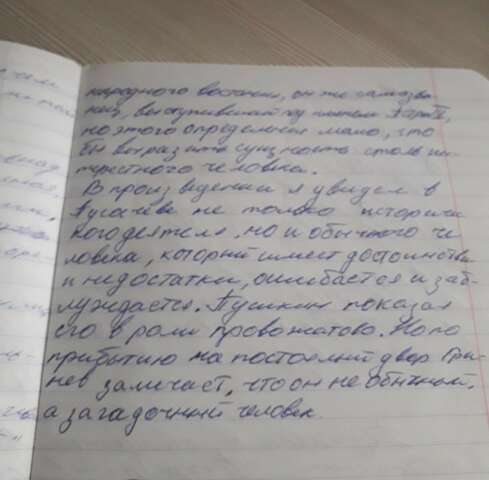 народного востания, он же самозва-
нец, выступивший под именем
но этого определения мало, что
бы выразить сущность столь ин-
терестного человека.
В произведении я увидел в
Пугачёве не только историчи
кого деятеля, но и обычного че
ловека, который имеет достоинства
и недостатки, ошибается и заб-
луждается. Пушкин показал
его в роли провожатово. Но по
прибытию на постоялий двор Гри-
нев замичает, что он не обычный,
а загадочный человек